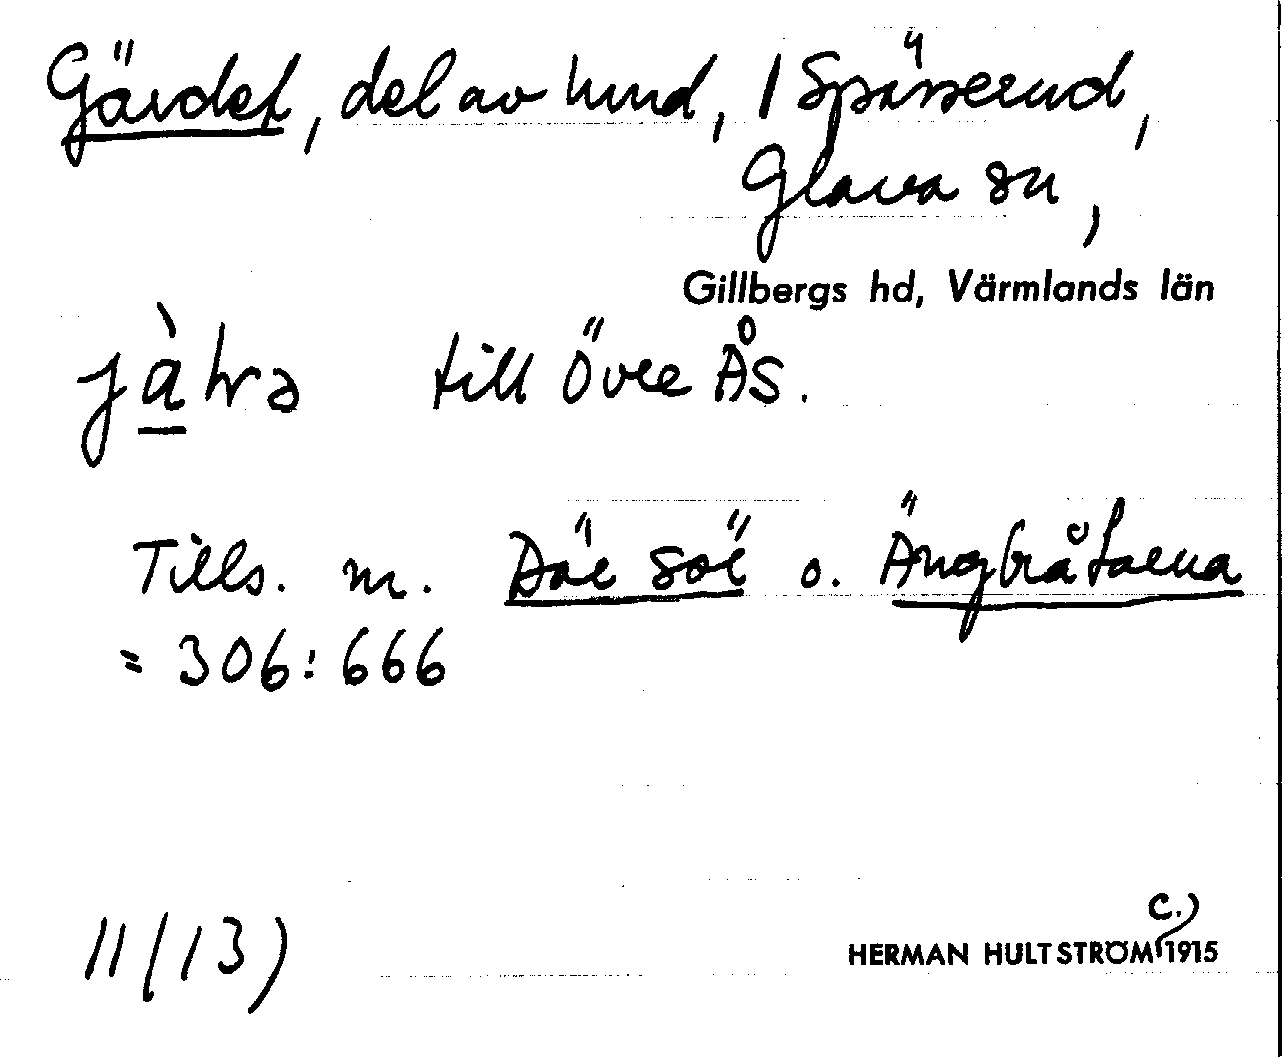 Gärdet, del av hmd, 1 Spässerud,
Glava sn,
Gillbergs hd, Värmlands län
jàtrə till Övre Ås.
Tills. m. Där sör o. Ängbråtarna
= 306:666
11(13)
c.)
HERMAN HULTSTRÖM 1915